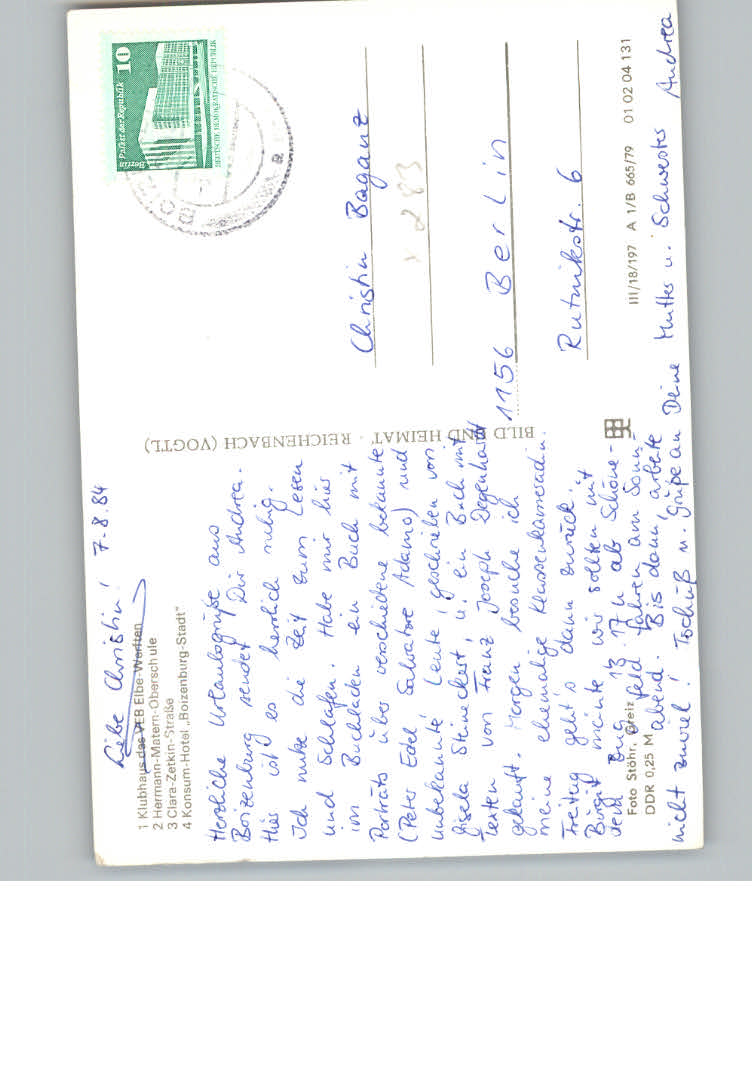 Liebe Christin! 7.8.84
1 Klubhaus des VEB Elbe-Werften
2 Hermann-Matern-Oberschule
3 Clara-Zetkin-Straße
4 Konsum-Hotel „Boizenburg-Stadt"
Herzliche Urlaubsgrüße aus
Boizenburg sendet Dir Andrea.
Hier ist es herrlich ruhig.
Ich nutze die Zeit zum Lesen
und Schlafen. Habe mir hier
im Buchladen ein Buch mit
Porträts über verschiedene bekannte
(Peter Edel Salvatore Adamo) und
unbekannte Leute, geschrieben von
Gisela Steineckert, u. ein Buch mit
Texten von Franz Joseph Degenhardt
gekauft. Morgen besuche ich
meine ehemalige Klassenkameradin.
Freitag geht's dann zurück.
Birgit meinte wir sollten mit
dem Zug 13.17 u ab Schöne-
feld fahren am Sonn-
abend. Bis dann, arbeite
nicht zuviel! Tschüß u. grüße an Deine Mutter u. Schwester Andrea
Foto Stöhr, Greiz
DDR 0,25 M
BILD UND HEIMAT · REICHENBACH (VOGTL)
10
Berlin Palast der Republik
DEUTSCHE DEMOKRATISCHE REPUBLIK
Christin Baganz
283
1156 Berlin
Rutnikstr. 6
III/18/197 A 1/B 665/79 01 02 04 131